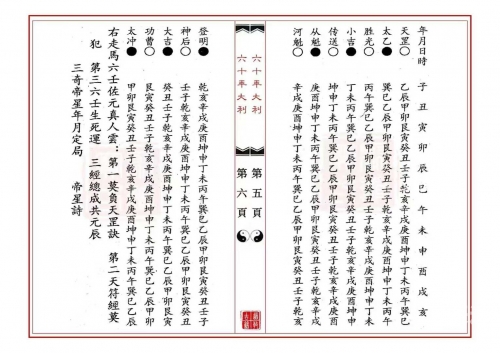 年月日時 子 丑 寅 卯 辰 巳 午 未 申 酉 戌 亥
天罡○ 乙辰甲卯艮寅癸丑壬子乾亥辛戌庚酉坤申丁未丙午巽巳
太乙● 巽巳乙辰甲卯艮寅癸丑壬子乾亥辛戌庚酉坤申丁未丙午
胜光○ 丙午巽巳乙辰甲卯艮寅癸丑壬子乾亥辛戌庚酉坤申丁未
小吉● 丁未丙午巽巳乙辰甲卯艮寅癸丑壬子乾亥辛戌庚酉坤申
传送○ 坤申丁未丙午巽巳乙辰甲卯艮寅癸丑壬子乾亥辛戌庚酉
从魁● 庚酉坤申丁未丙午巽巳乙辰甲卯艮寅癸丑壬子乾亥辛戌
河魁○ 辛戌庚酉坤申丁未丙午巽巳乙辰甲卯艮寅癸丑壬子乾亥
六十年大利 第五頁
六十年大利 第六頁
登明● 乾亥辛戌庚酉坤申丁未丙午巽巳乙辰甲卯艮寅癸丑壬子
神后○ 壬子乾亥辛戌庚酉坤申丁未丙午巽巳乙辰甲卯艮寅癸丑
大吉● 癸丑壬子乾亥辛戌庚酉坤申丁未丙午巽巳乙辰甲卯艮寅
功曹○ 艮寅癸丑壬子乾亥辛戌庚酉坤申丁未丙午巽巳乙辰甲卯
太冲● 甲卯艮寅癸丑壬子乾亥辛戌庚酉坤申丁未丙午巽巳乙辰
右走馬六壬佐元真人雲：第一莫負天罡訣 第二天符經莫
犯 第三六壬生死運 三經總成共元辰
三奇帝星年月定局 帝星詩